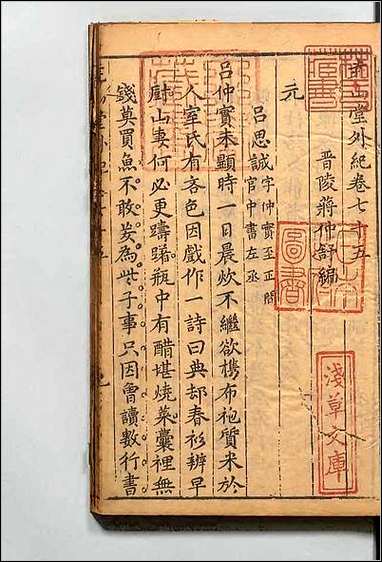 堯山堂外紀卷七十五
晋陵蔣仲舒編
元
呂思誠字仲實至正間
官中書左丞
呂仲實未顯時一日晨炊不繼欲携布袍質米於
人室氏有吝色因戱作一詩曰典却春衫辨早
厨山妻何必更躊躇瓶中有醋堪燒菜囊裡無
錢莫買魚不敢妄為些子事只因曾讀數行書
淺草文庫
圖書